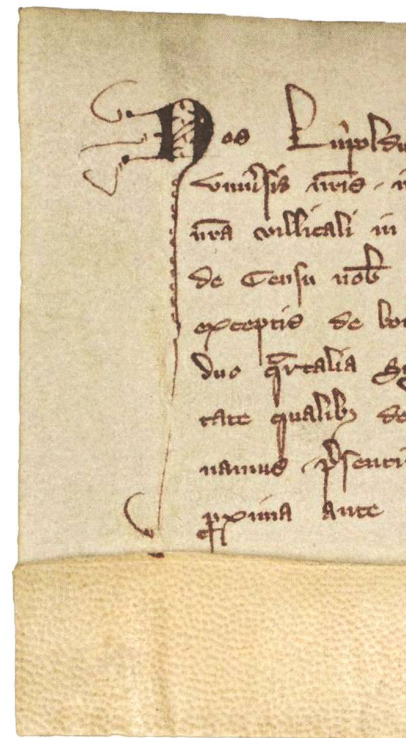 Nos Lupoldus
vniuersis nris
nra villicali in
de Censu nob
exceptis de bo
duo qrtalia
tate qualibꝫ de
namus p̄senti
ꝓxima ante